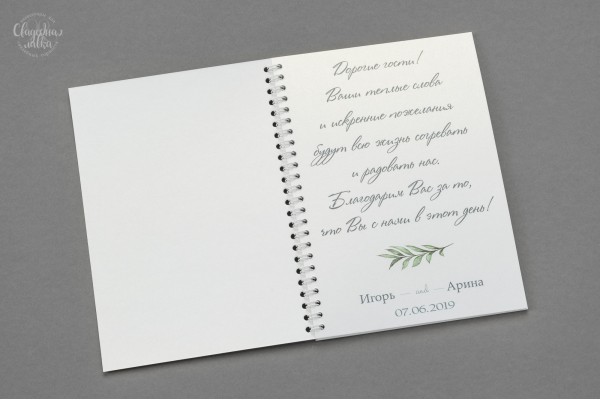 Свадебная
лавка
Дорогие гости!
Ваши теплые слова
и искренние пожелания
будут всю жизнь согревать
и радовать нас.
Благодарим Вас за то,
что Вы с нами в этот день!
Игорь — and — Арина
07.06.2019